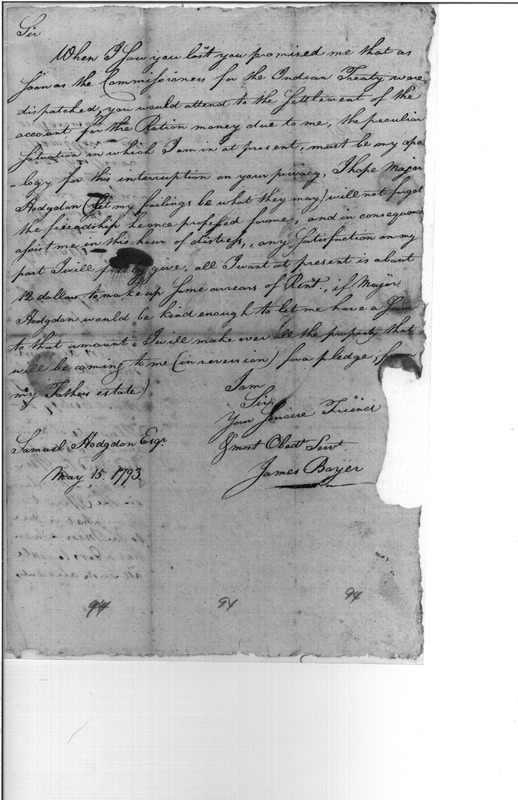 Sir
When I saw you last you promised me that as
soon as the Commissioners for the Indian Treaty were
dispatched, you would attend to the Settlement of the
account for the Ration money due to me, the peculiar
Situation in which I am in at present, must be my apo
-logy for this interruption on your privacy, I hope Major
Hodgdon (let my failings be what they may) will not forget
the friendship he once professed for me, and in consequence
assist me in this hour of distress, any Satisfaction on my
part I will give, all I want at present is about
12 dollars to make up some arrears of Rent, if Major
Hodgdon would be kind enough to let me have a
to that amount I will make over all the property that
will be coming to me (in reversion) for a pledge, (from
my Fathers estate)
I am
Sir
Your Sincere Friend
& most Obedt Servt
James Boyer
Samuel Hodgdon Esqr
May 15. 1793
94 94 94